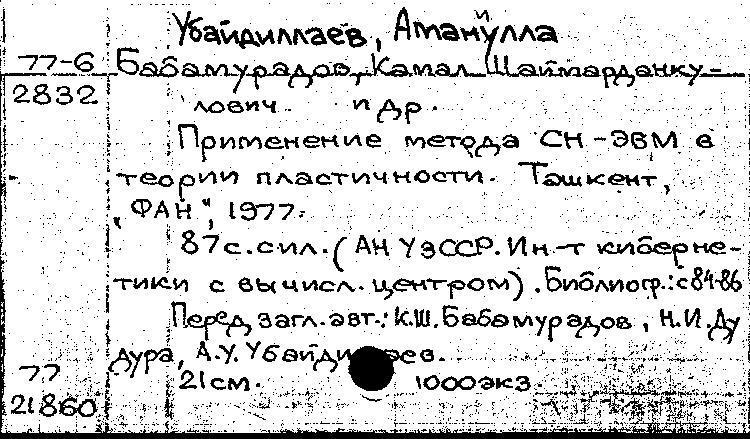 Убайдиллаев, Аманулла
77-6 Бабамурадов, Камал Шаймарданку-
2832 лович. и др.
Применение метода СН-ЭВМ в
теории пластичности. Ташкент,
"ФАН", 1977.
87с.сил. (АН УзССР. Ин-т киберне-
тики с вычисл. центром). Библиогр.: с 84-86
Перед загл. авт.: К.Ш. Бабамурадов, Н.И. Ду
дура, А.У.
77 21см. 1000экз.
21860